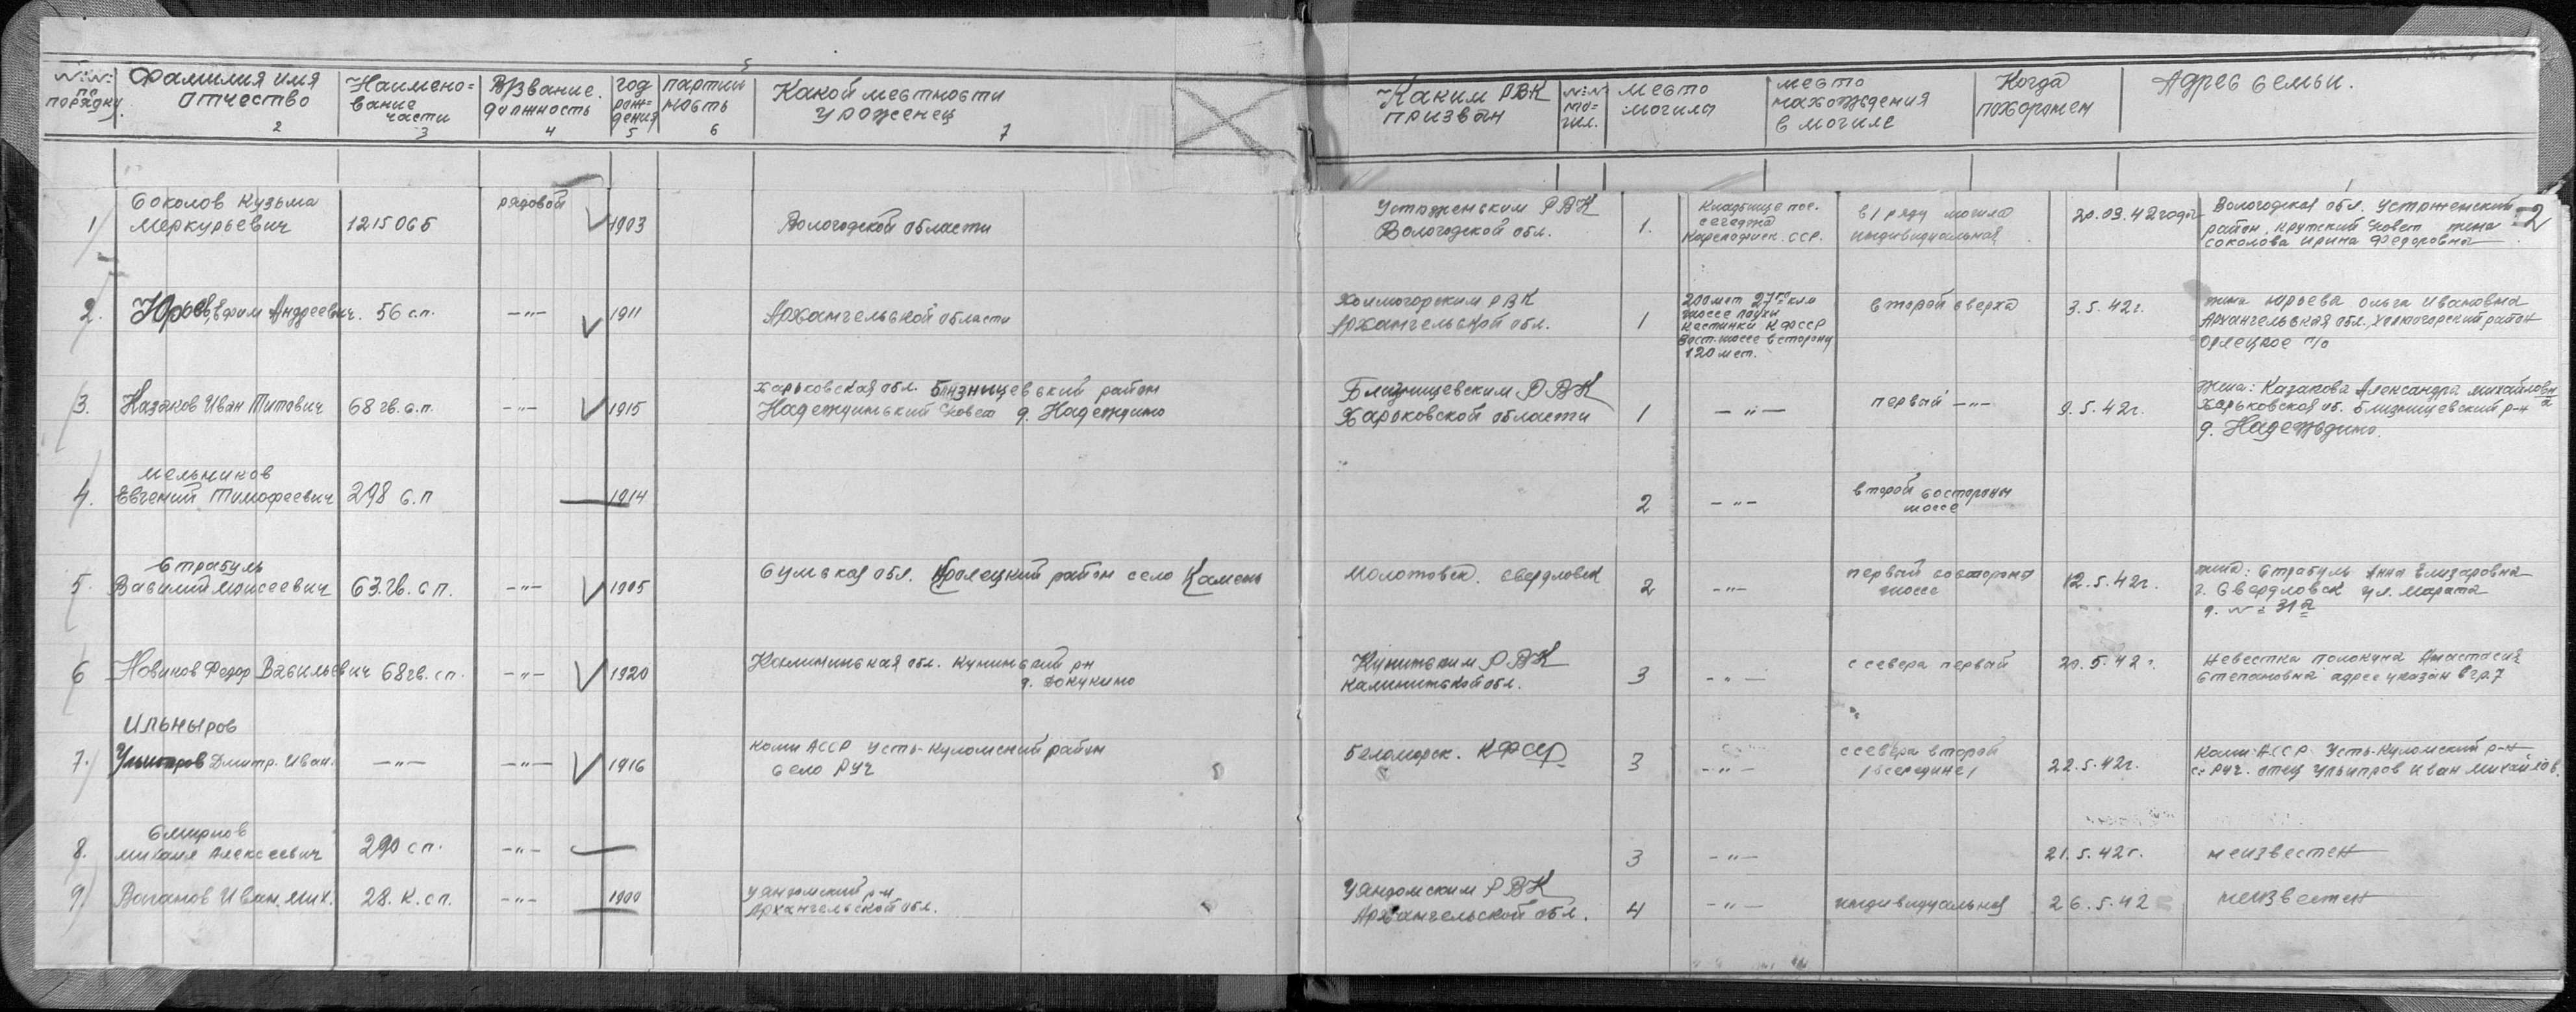 №№ по порядку.
Фамилия имя отчество
2
Наимено= вание части
3
В/звание. должность
4
год рож= дения
5
партий ность
6
Какой местности уроженец
7
Каким РВК призван
№№ мо= гил.
место могилы
место нахождения в могиле
Когда похоронен
Адрес семьи.
2
1
Соколов Кузьма
Меркурьевич
1215 об5
рядовой
1903
Вологодской области
Устюженским РВК
Вологодской обл.
1.
Кладбище пос.
сегежда
Карелофинск. ССР.
в 1 ряду могила
индивидуальная
20.03.42 года
Вологодская обл. Устюженский
район, Крутский Совет жена
Соколова Ирина Федоровна
2.
Юрьев, Ефим Андреевич.
56 с.п.
-"-
1911
Архангельской области
Холмогорским РВК
Архангельской обл.
1
200 мет 27го клм
шоссе
К ФССР
вост. шоссе в сторону
120 мет.
второй сверха
3.5.42г.
жена Юрьева Ольга Ивановна
Архангельская обл., Холмогорский район
Орлецкое п/о
3.
Казаков Иван Титович
68 гв. с.п.
-"-
1915
Харьковская обл. Близницевский район
Надеждинский Совет д. Надеждино
Близницевским РВК
Харьковской области
1
-"-
первый -"-
9.5.42г.
Жена: Казакова Александра Михайловна
Харьковская об. Близницевский р-н
д. Надеждино.
4.
Мельников
Евгений Тимофеевич
298 с.п
1914
2
-"-
второй состороны
шоссе
5.
Страбуль
Василий Моисеевич
63.гв. с п.
-"-
1905
Сумская обл. район село Камень
Молотовск. Свердловск
2
-"-
первый состороны
шоссе
12.5.42г.
жена: Страбуль Анна Елизаровна
г. Свердловск ул. Марата
д. № 31а
6
Новиков Федор Васильевич
68 гв. сп.
-"-
1920
Калининская обл. Куньинский рн
д. Докукино
Куньинским РВК
Калининской обл.
3
-"-
с севера первый
20.5.42г.
Невестка Анастасия
Степановна адрес указан в гр. 7
7.
Ильныров
Дмитр. Иван.
-"-
-"-
1916
Коми АССР Усть-Куломский район
село Руч
Беломорск. КФССР
3
-"-
с севера второй
/всередине/
22.5.42г.
Коми АССР Усть-Куломский р-н
с. Руч. отец Ульныров Иван Михайлов.
8.
Смирнов
Михаил Алексеевич
290 сп.
-"-
3
-"-
21.5.42г.
неизвестен
9
Ваганов Иван. Мих.
28. К. сп.
-"-
1900
Няндомский р-н
Архангельской обл.
Няндомским РВК
Архангельской обл.
4
-"-
индивидуальная
26.5.42
неизвестен